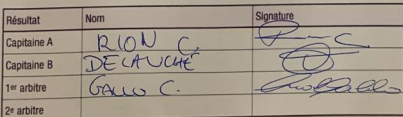 Résultat Nom Signature
Capitaine A RION C.
Capitaine B DECAUCHE
1er arbitre GALLO C.
2e arbitre